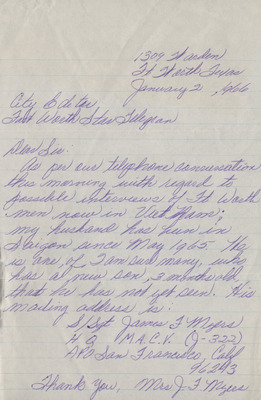 1309 Warden
Ft Worth Texas
January 2, 1966
City Editor
Fort Worth Star Telegram
Dear Sir:
As per our telephone conversation
this morning with regard to
possible interviews of Ft Worth
men now in Viet Nam;
my husband has been in
Saigon since May 1965. He
is one of I am sure many, who
has a new son, 3 months old
that he has not seen. His
mailing address is:
S/Sgt James F Myers
HQ M.A.C.V. (J-322)
APO San Francisco, Calif
96243
Thank You, Mrs J F Myers